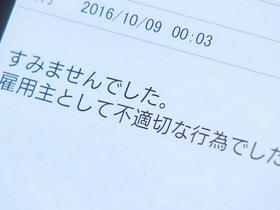 2016/10/09 00:03
すみませんでした。
雇用主として不適切な行為でした